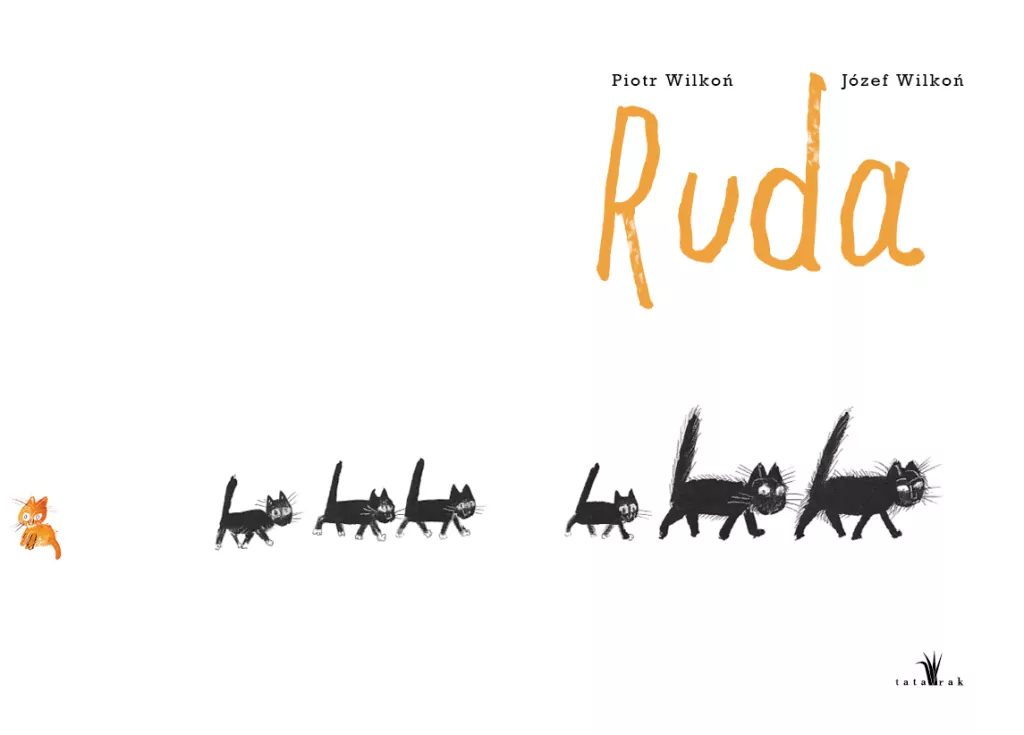 Piotr Wilkoń Józef Wilkoń
Ruda
tatarak